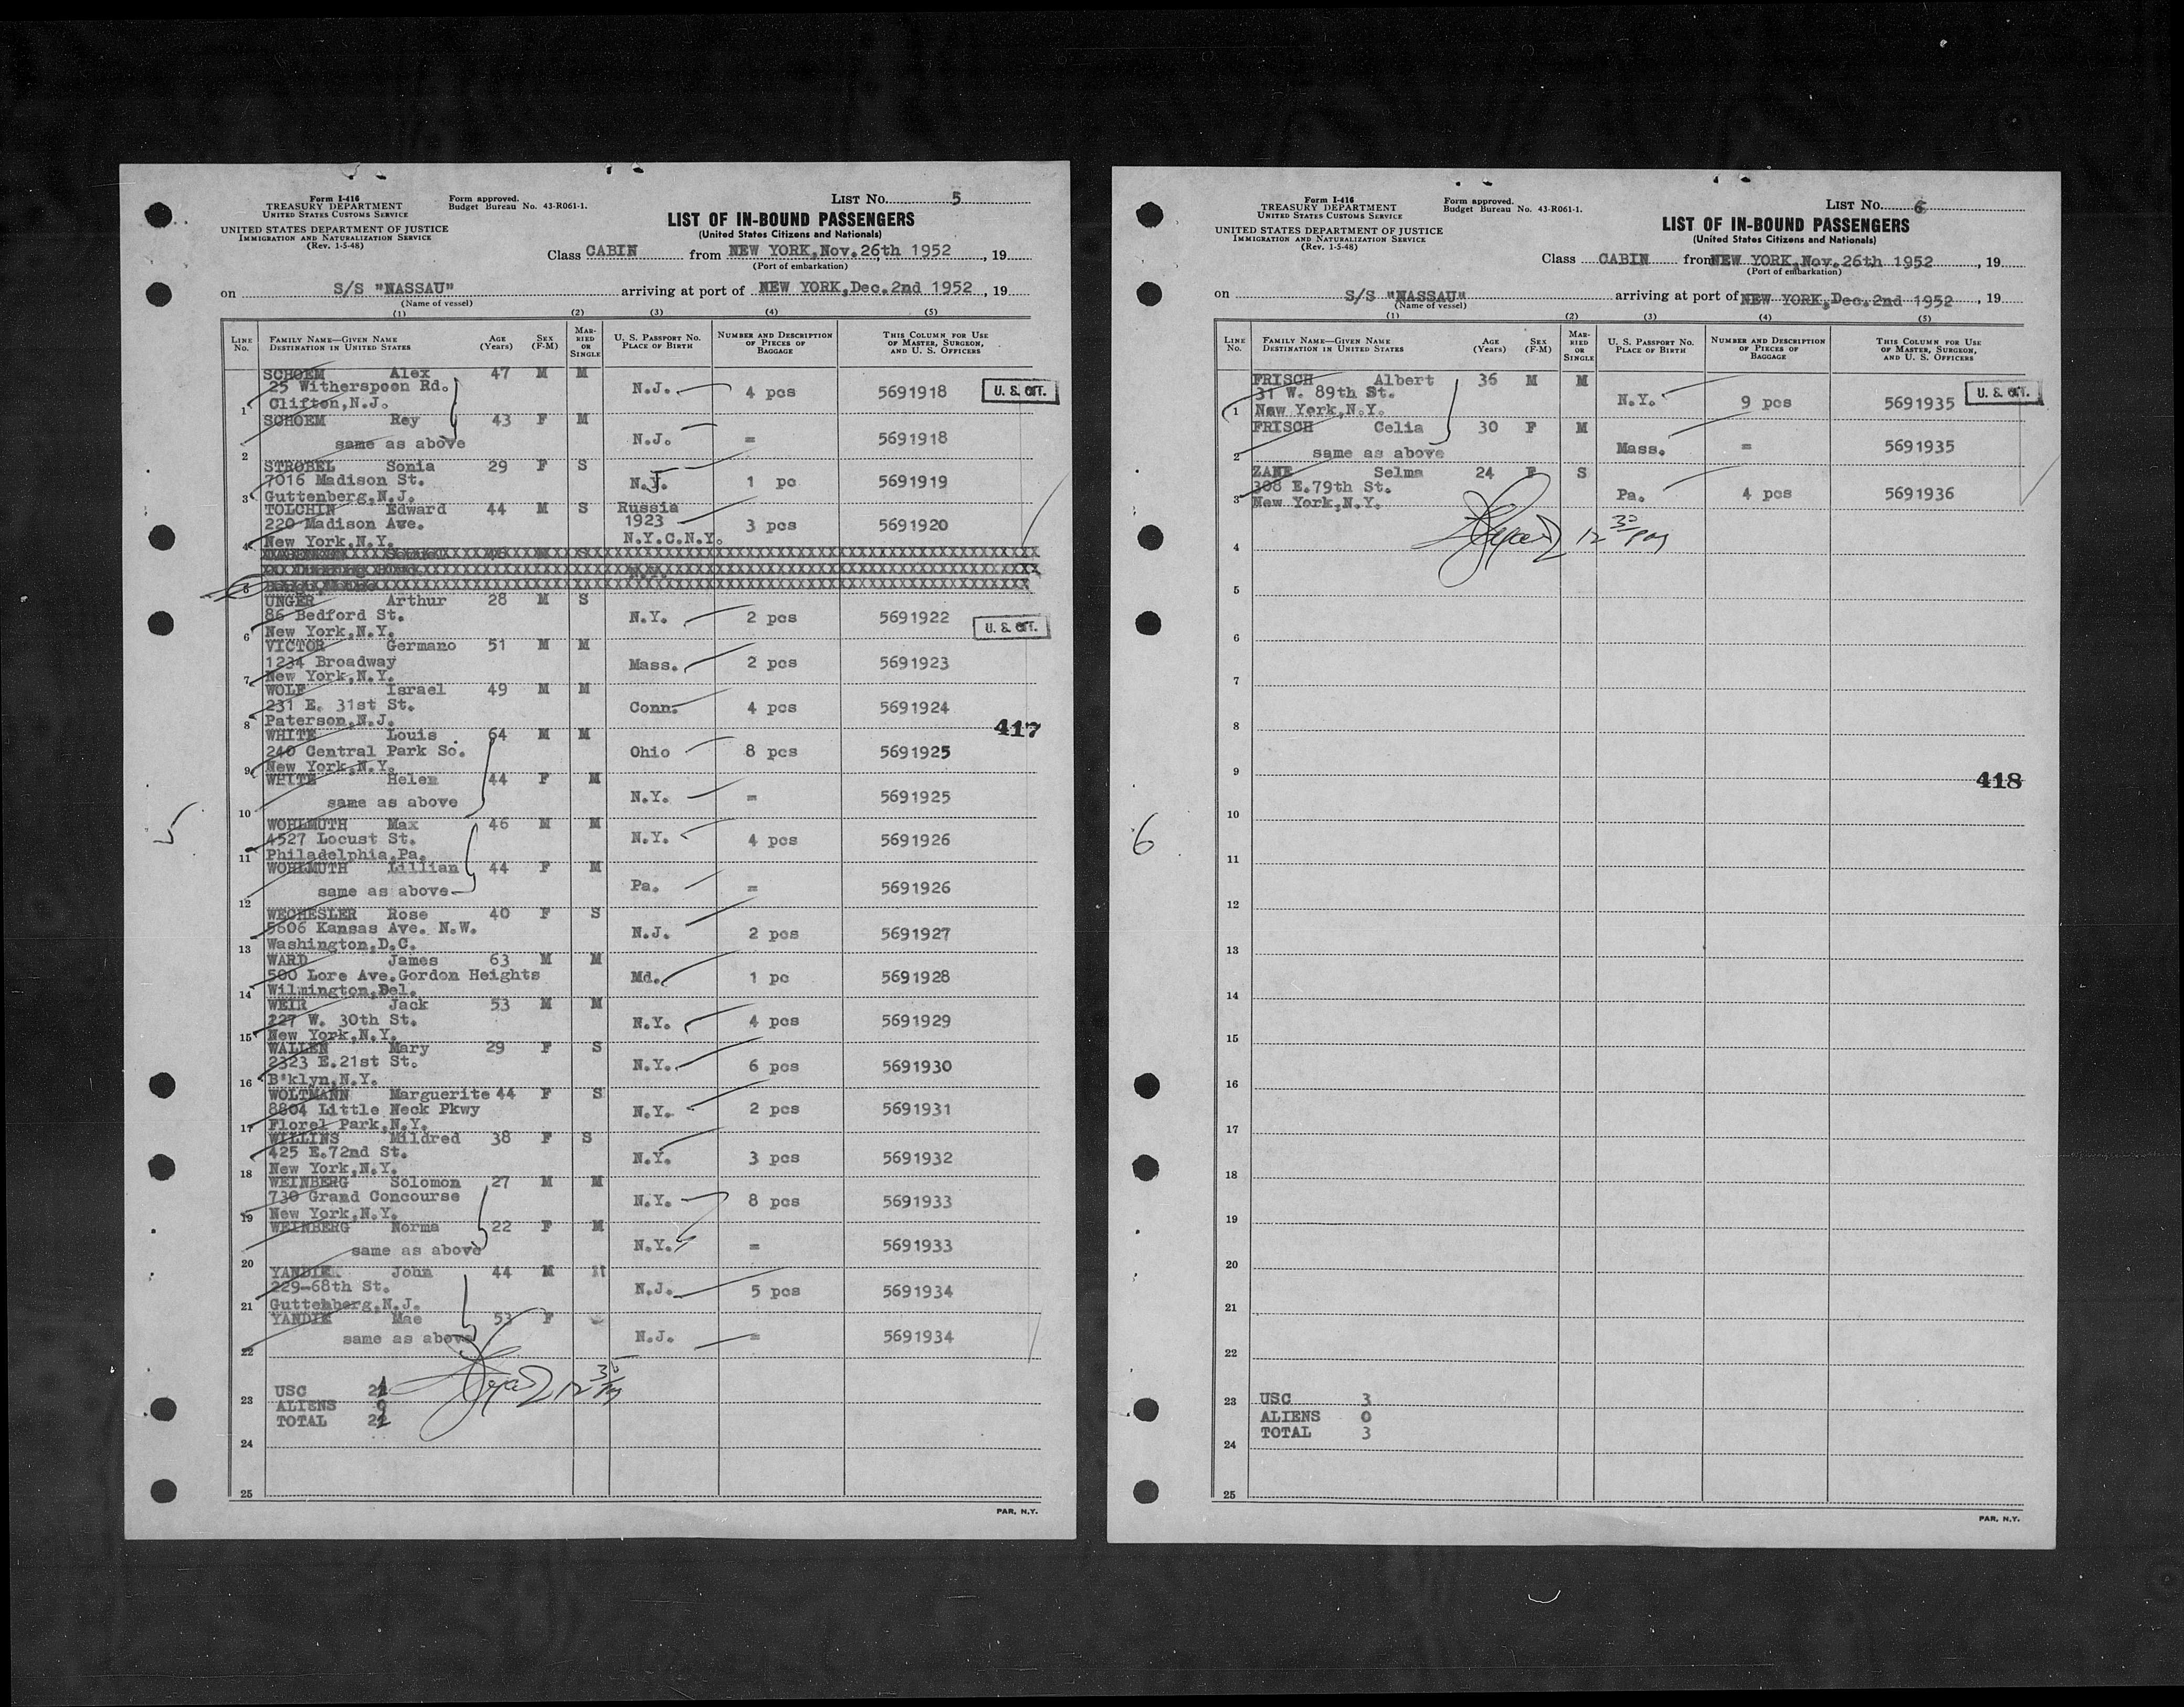 Form I-416
TREASURY DEPARTMENT
UNITED STATES CUSTOMS SERVICE
UNITED STATES DEPARTMENT OF JUSTICE
IMMIGRATION AND NATURALIZATION SERVICE
(Rev. 1-5-48)
Form approved.
Budget Bureau No. 43-R061-1.
LIST No. 5
LIST OF IN-BOUND PASSENGERS
(United States Citizens and Nationals)
Class CABIN from NEW YORK, Nov. 26th 1952, 19
(Port of embarkation)
on S/S "NASSAU" arriving at port of NEW YORK, Dec. 2nd 1952, 19
(Name of vessel)
(1) (2) (3) (4) (5)
LINE No. FAMILY NAME—GIVEN NAME DESTINATION IN UNITED STATES AGE (Years) SEX (F-M) MARRIED OR SINGLE U. S. PASSPORT No. PLACE OF BIRTH NUMBER AND DESCRIPTION OF PIECES OF BAGGAGE THIS COLUMN FOR USE OF MASTER, SURGEON, AND U. S. OFFICERS
SCHOEM Alex 47 M M
25 Witherspoon Rd. N.J. 4 pcs 5691918 U. S. CIT.
1 Clifton, N.J.
SCHOEM Rey 43 F M
same as above N.J. = 5691918
2
STROBEL Sonia 29 F S
7016 Madison St. N.J. 1 pc 5691919
3 Guttenberg, N.J.
TOLCHIN Edward 44 M S Russia
220 Madison Ave. 1923 3 pcs 5691920
4 New York, N.Y. N.Y.C.N.Y.
5 N.Y.
UNGER Arthur 28 M S
86 Bedford St. N.Y. 2 pcs 5691922 U. S. CIT.
6 New York, N.Y.
VICTOR Germano 51 M M
1234 Broadway Mass. 2 pcs 5691923
7 New York, N.Y.
WOLF Israel 49 M M
231 E. 31st St. Conn. 4 pcs 5691924
8 Paterson, N.J. 417
WHITE Louis 64 M M
240 Central Park So. Ohio 8 pcs 5691925
9 New York, N.Y.
WHITE Helen 44 F M
same as above N.Y. = 5691925
10
WOHLMUTH Max 46 M M
4527 Locust St. N.Y. 4 pcs 5691926
11 Philadelphia, Pa.
WOHLMUTH Lillian 44 F M
same as above Pa. = 5691926
12
WECHESLER Rose 40 F S
5606 Kansas Ave. N.W. N.J. 2 pcs 5691927
13 Washington, D.C.
WARD James 63 M M
500 Lore Ave. Gordon Heights Md. 1 pc 5691928
14 Wilmington, Del.
WEIR Jack 53 M M
227 W. 30th St. N.Y. 4 pcs 5691929
15 New York, N.Y.
WALLEN Mary 29 F S
2323 E. 21st St. N.Y. 6 pcs 5691930
16 B'klyn, N.Y.
WOLTMANN Marguerite 44 F S
8804 Little Neck Pkwy N.Y. 2 pcs 5691931
17 Florel Park, N.Y.
WILLINS Mildred 38 F S
425 E. 72nd St. N.Y. 3 pcs 5691932
18 New York, N.Y.
WEINBERG Solomon 27 M M
730 Grand Concourse N.Y. 8 pcs 5691933
19 New York, N.Y.
WEINBERG Norma 22 F M
same as above N.Y. = 5691933
20
YANDIK John 44 M M
229-68th St. N.J. 5 pcs 5691934
21 Guttenberg, N.J.
YANDIK Mae 53 F
same as above N.J. = 5691934
22
12 30 PM
USC 21
23 ALIENS 0
TOTAL 21
24
25
PAR. N.Y.
5
Form I-416
TREASURY DEPARTMENT
UNITED STATES CUSTOMS SERVICE
UNITED STATES DEPARTMENT OF JUSTICE
IMMIGRATION AND NATURALIZATION SERVICE
(Rev. 1-5-48)
Form approved.
Budget Bureau No. 43-R061-1.
LIST No. 6
LIST OF IN-BOUND PASSENGERS
(United States Citizens and Nationals)
Class CABIN from NEW YORK, Nov. 26th 1952, 19
(Port of embarkation)
on S/S "NASSAU" arriving at port of NEW YORK, Dec. 2nd 1952, 19
(Name of vessel)
(1) (2) (3) (4) (5)
LINE No. FAMILY NAME—GIVEN NAME DESTINATION IN UNITED STATES AGE (Years) SEX (F-M) MARRIED OR SINGLE U. S. PASSPORT No. PLACE OF BIRTH NUMBER AND DESCRIPTION OF PIECES OF BAGGAGE THIS COLUMN FOR USE OF MASTER, SURGEON, AND U. S. OFFICERS
FRISCH Albert 36 M M
31 W. 89th St. N.Y. 9 pcs 5691935 U. S. CIT.
1 New York, N.Y.
FRISCH Celia 30 F M
same as above Mass. = 5691935
2
ZANE Selma 24 F S
308 E. 79th St. Pa. 4 pcs 5691936
3 New York, N.Y.
12 30 PM
4
5
6
7
8
9 418
10
6
11
12
13
14
15
16
17
18
19
20
21
22
23 USC 3
ALIENS 0
TOTAL 3
24
25
PAR. N.Y.